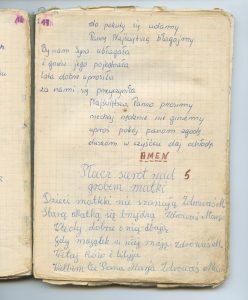 do pokuty się udamy
Panny Najświętszej błagajmy
By nam Syna ubłagała
I gniew jego pojednała
lata dobre uprosiła
za nami się przyczyniła
Najświętsza Panno prosimy
niechaj nędznie nie giniemy
uproś pokój panom zgodę
duszom w czyśćcu daj ochłodę
AMEN
Płacz sierot nad 5
grobem matki
Dzieci matki nie szanują Zdrowaś M
Starą matką się brzydzą Zdrowaś Marja
Kiedy dobrze o nią dbając
Gdy majątek w niej mają Zdrowaś M
Witaj Różo i lilija
Wielbim Cię Panno Marja Zdrowaś Maria